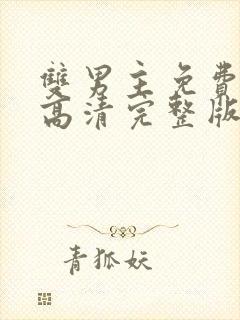 雙男主免費
高清完整版
青狐妖